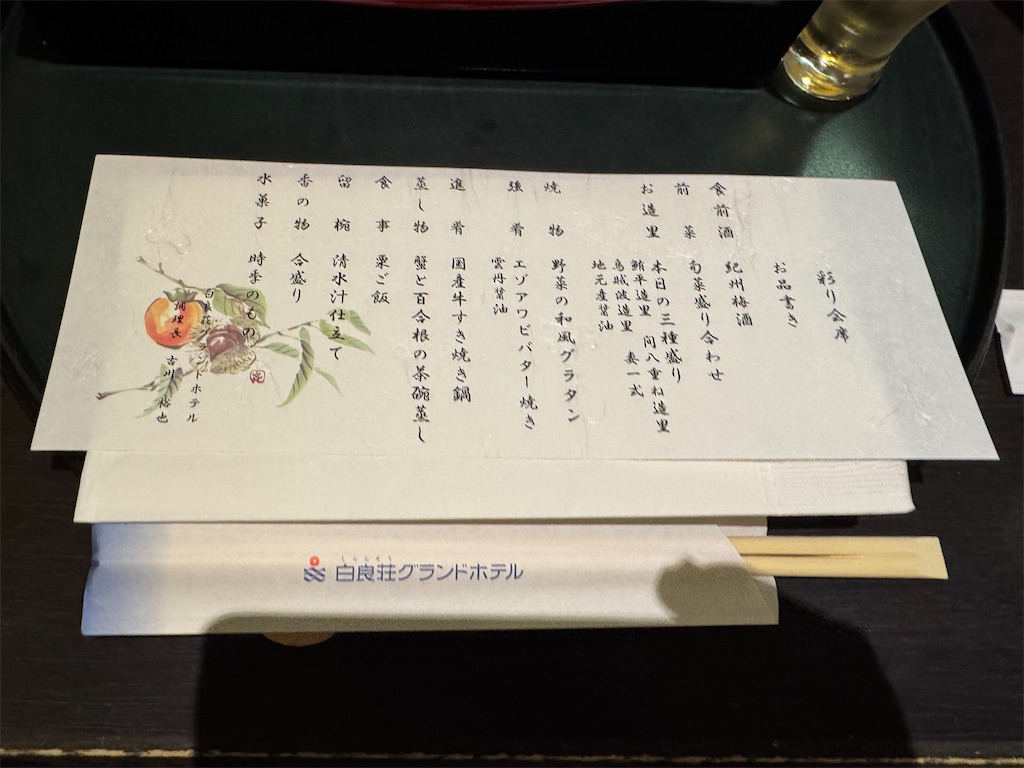 彩り会席
お品書き
食前酒 紀州梅酒
前菜 旬菜盛り合わせ
お造里 本日の三種盛り
鮪平造里 間八重ね造里
烏賊波造里 妻一式
地元産醤油
焼物 野菜の和風グラタン
強肴 エゾアワビバター焼き
雲丹醤油
進肴 国産牛すき焼き鍋
蒸し物 蟹と百合根の茶碗蒸し
食事 栗ご飯
留椀 清水汁仕立て
香の物 合盛り
水菓子 時季のもの
白良荘グランドホテル
調理長 古川 裕也
しららそう
白良荘グランドホテル